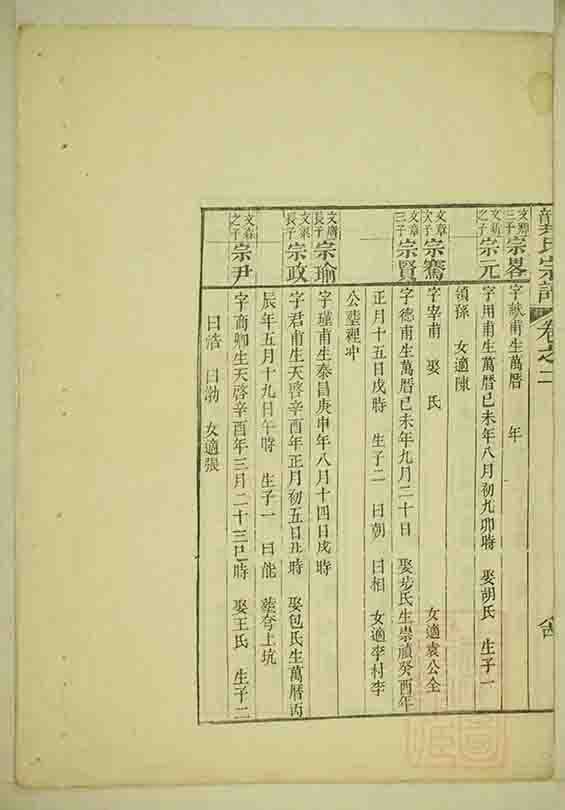 氏宗譜 卷之二
三子 宗畧 字猷甫生萬曆 年
之子 宗元 字用甫生萬曆己未年八月初九卯時 娶胡氏 生子一
領孫 女適陳
文章次子 宗騫 字宰甫 娶 氏 女適袁公全
文章三子 宗賢 字德甫生萬曆己未年九月二十日 娶步氏生崇禎癸酉年
正月十五日戌時 生子二 曰朝 曰相 女適李村李
公塟裡冲
長子 宗瑜 字瑾甫生泰昌庚申年八月十四日戌時
長子 宗政 字君甫生天啓辛酉年正月初五日丑時 娶包氏生萬曆丙
辰年五月十九日午時 生子一 曰能 塟夸上坑
之子 宗尹 字商卿生天啓辛酉年三月二十三巳時 娶王氏 生子二
曰浩 曰渤 女適張